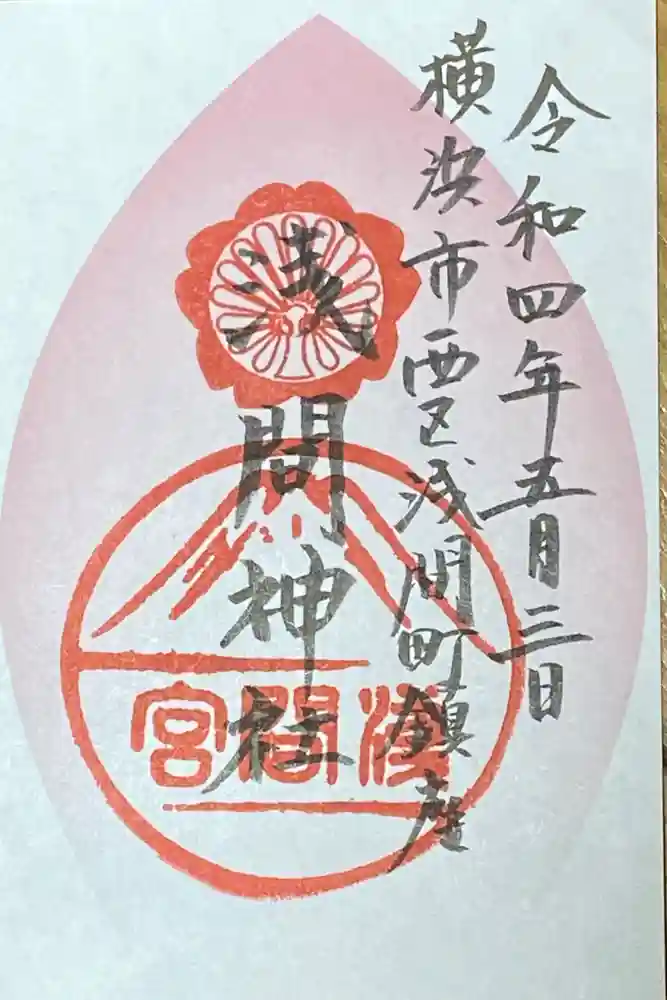 令和四年五月三日
横浜市西区浅間町鎮座
浅間神社
浅間宮